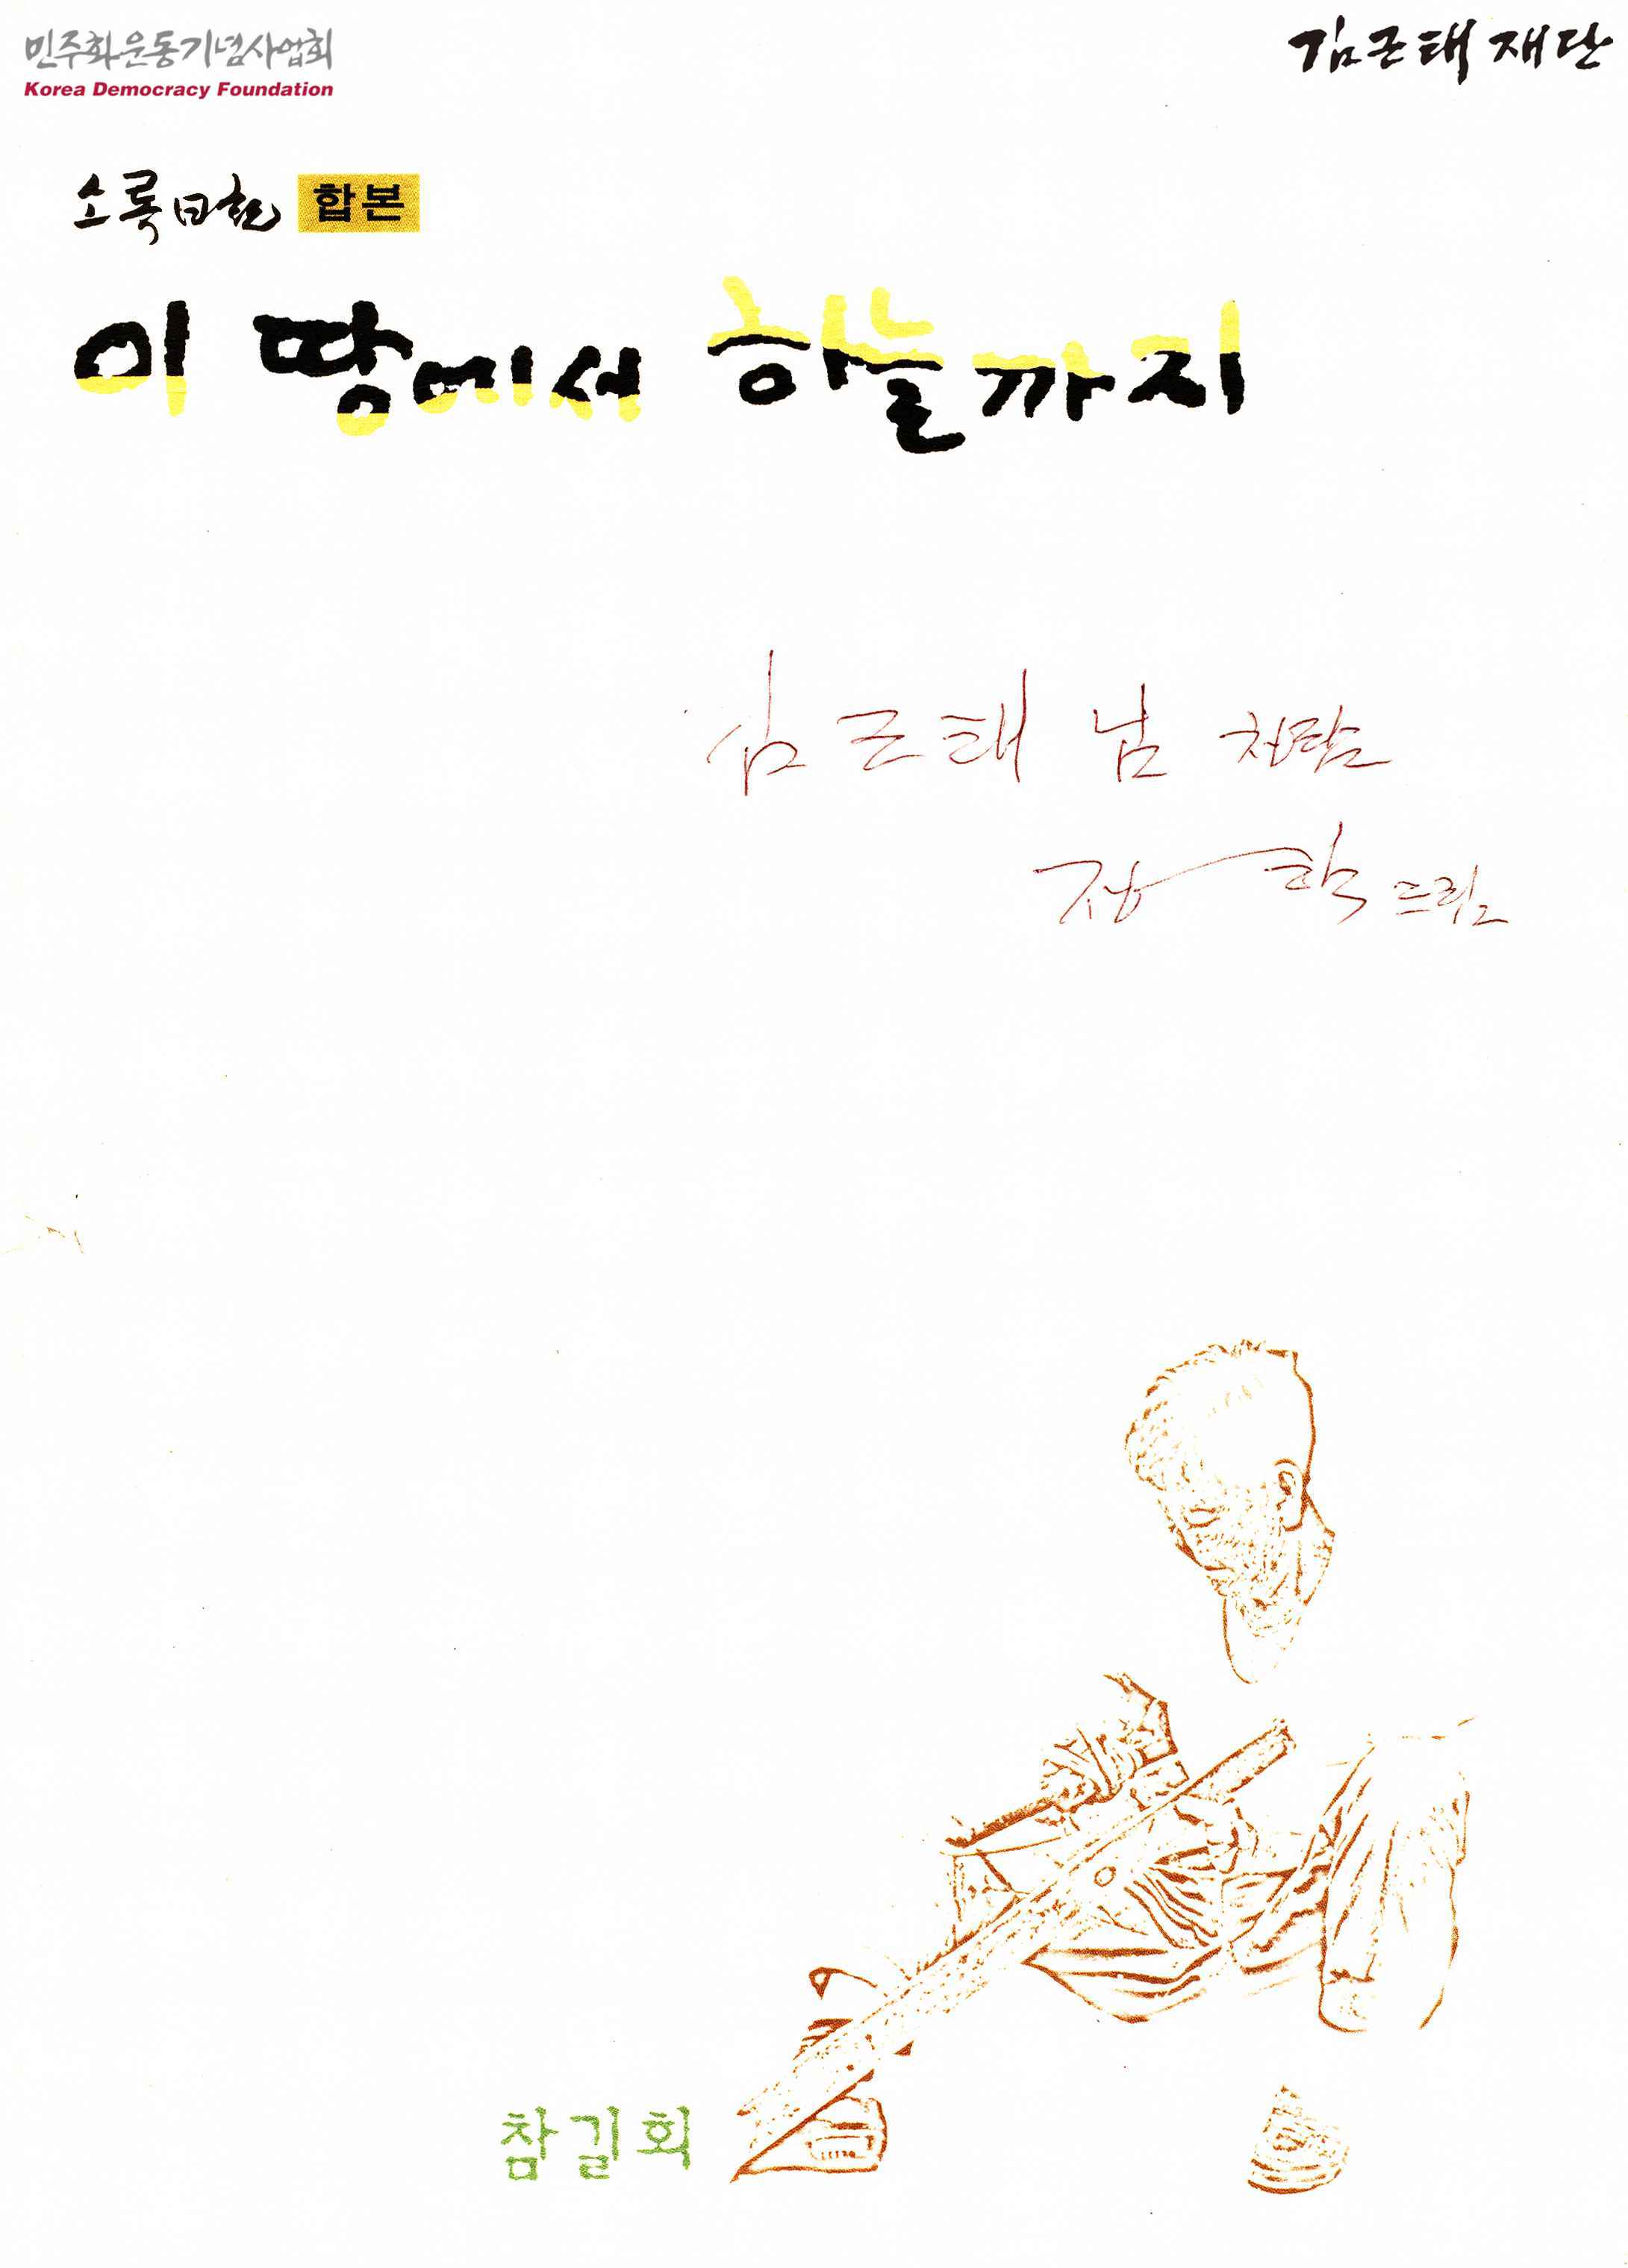 민주화운동기념사업회
Korea Democracy Foundation
김근태 재단
소록日記 합본
이 땅에서 하늘까지
김근태 님 처럼
드림
참길회